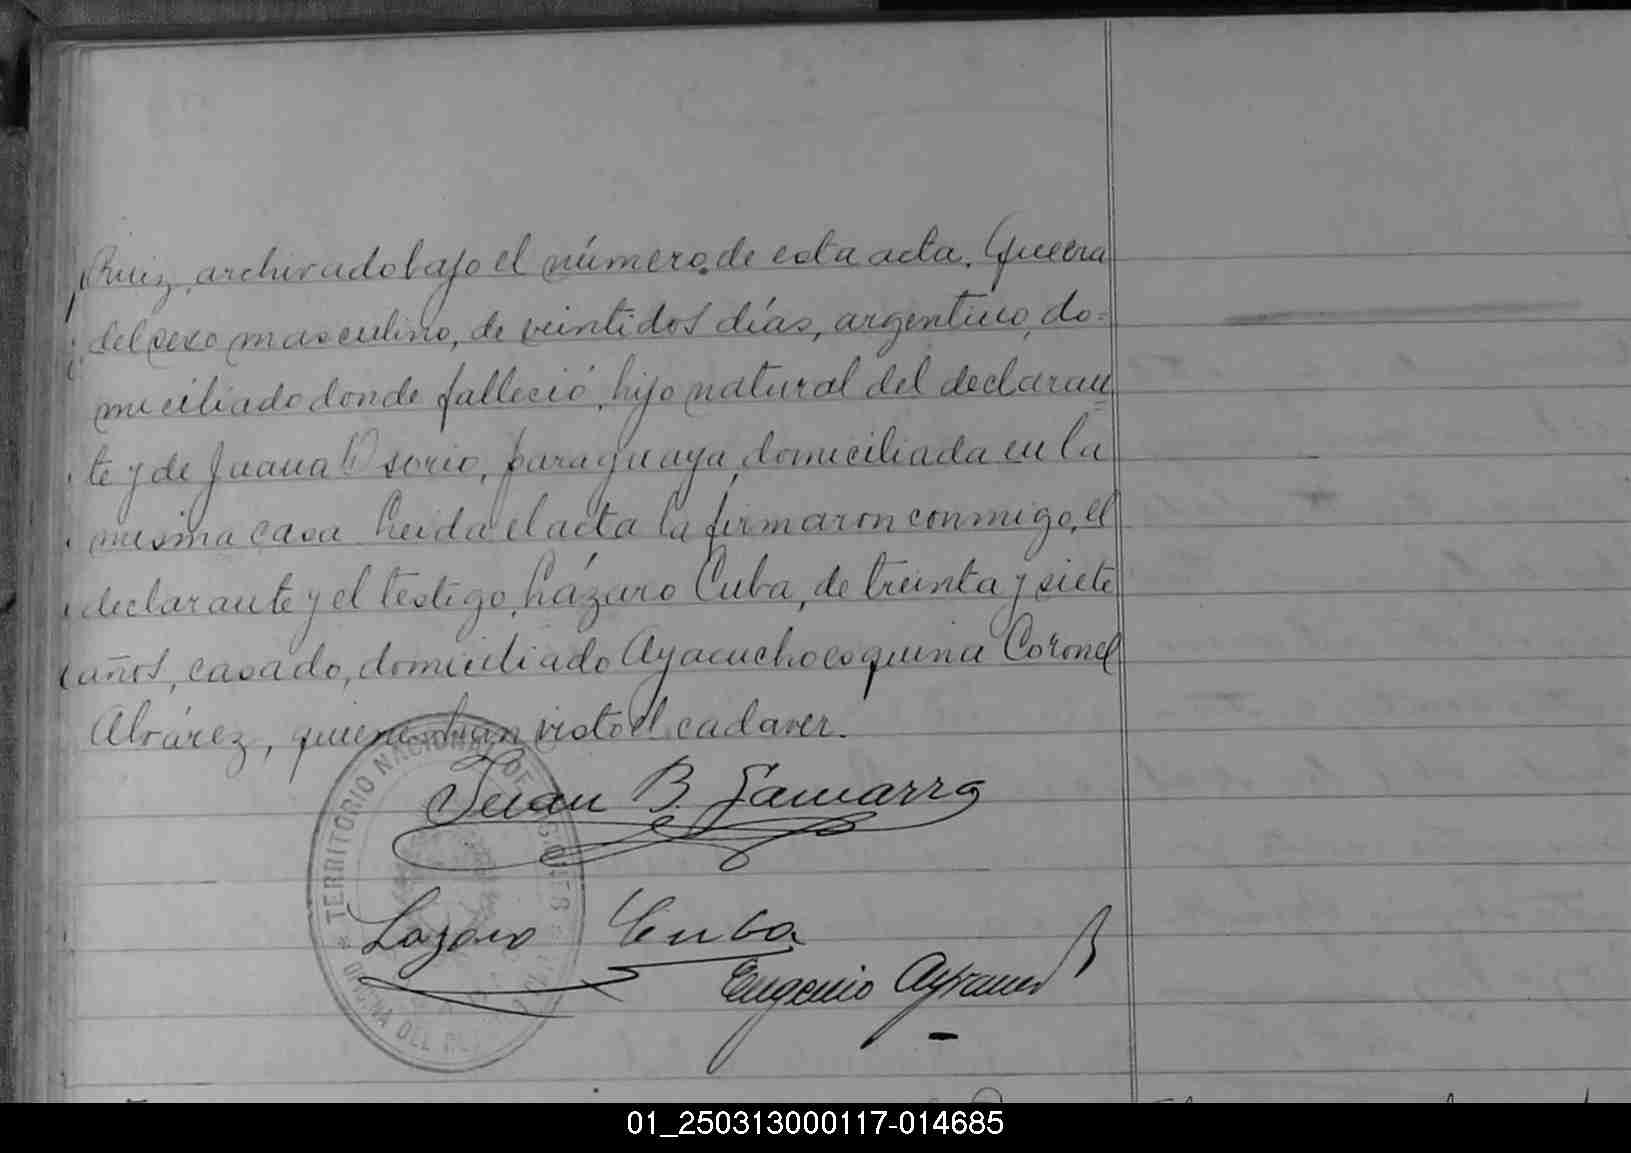 Ruiz, archivado bajo el número de esta acta. Que era
del sexo masculino, de veintidos días, argentino, do=
miciliado donde falleció, hijo natural del declaran
te y de Juana Osorio, paraguaya, domiciliada en la
misma casa. Leida el acta la firmaron conmigo, el
declarante y el testigo, Lázaro Cuba, de treinta y siete
años, casado, domiciliado Ayacucho esquina Coronel
Alvárez, quienes han visto el cadaver.
TERRITORIO NACIONAL DE MISIONES
Juan B. Gamarra
Lazaro Cuba
Eugenio
OFICINA DEL
01_250313000117-014685